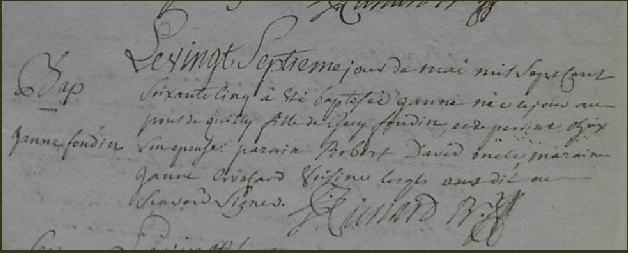 Le vingt Septieme jour de mai mil Sept Cent
Bap
Soixante cinq à été baptisée janne née ce jour au
pont de quilly fille de fondin, et de perrine
janne fondin
Son epouse: parain Robert David maraine
janne voisine lesqls ont dit ne
Scavoir Signer.